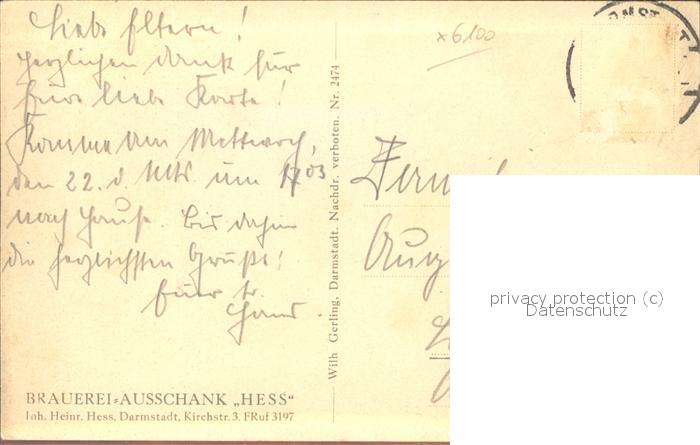 Liebe Eltern!
Herzlichen Dank für
Eure liebe Karte!
Komme am Mittwoch,
den 22. d. Mts um 17⁰³
nach Hause. Bis dahin
die herzlichsten Grüße!
Euer tr.
Hans.
BRAUEREI=AUSSCHANK „HESS“
Inh. Heinr. Hess, Darmstadt, Kirchstr. 3. FRuf 3197
Wilh Gerling, Darmstadt. Nachdr. verboten. Nr. 2474
x6100
privacy protection (c)
Datenschutz